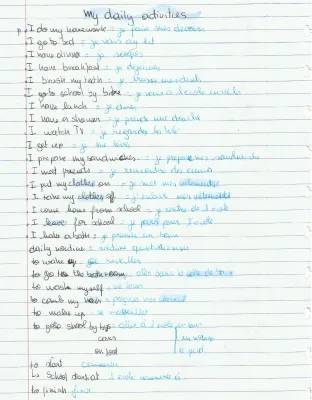 My daily activities
I do my homework = je fais mes devoirs
I go to bed = je vais au lit
I have dinner = je
I have breakfast = je déjeune
I brush my teeth = je brosse mes dents
I go to school by bike = je vais à l'école en vélo
I have lunch = je dine
I have a shower = je prends une douche
I watch TV = je regarde la télé
I get up = je me lève
I prepare my sandwiches = je prépare mes sandwichs
I meet friends = je rencontre des amis
I put my clothes on = je met mes vêtements
I take my clothes off = j'enlève mes vêtements
I come home from school = je rentre de l'école
I leave for school = je pars pour l'école
I have a bath = je prends un bain
daily routine = routine quotidienne
to wake up = se réveiller
to go to the bathroom = aller dans la salle de bain
to wash myself = se laver
to comb my hair =
to make up = se maquiller
to go to school by bus = aller à l'école en bus
cars | en voiture
on foot | à pied
to start commencer
↳ School starts at l'école commence à
to finish finir